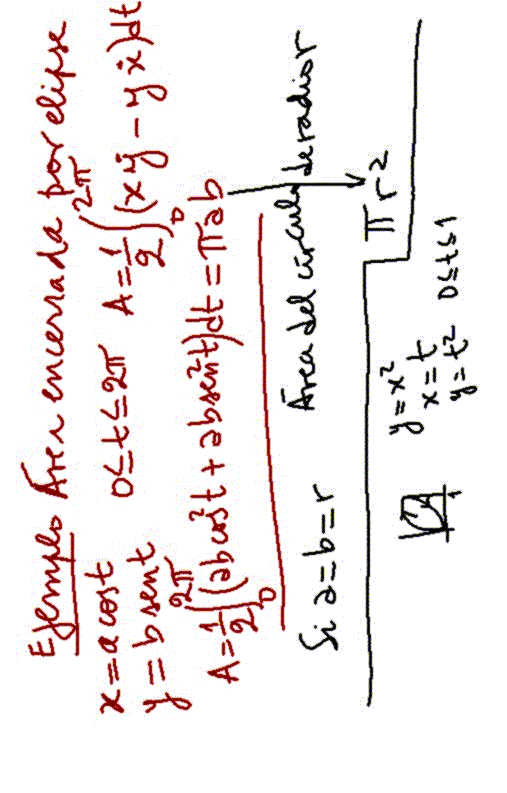 Ejemplo Área encerrada por elipse
x = a cost 0≤t≤2π A = 1/2 ∫₀^2π (xẏ − yẋ)dt
y = b sent
A = 1/2 ∫₀^2π (ab cos²t + ab sen²t)dt = πab
Si a = b = r Área del círculo de radio r
πr²
y = x²
x = t
y = t² 0≤t≤1